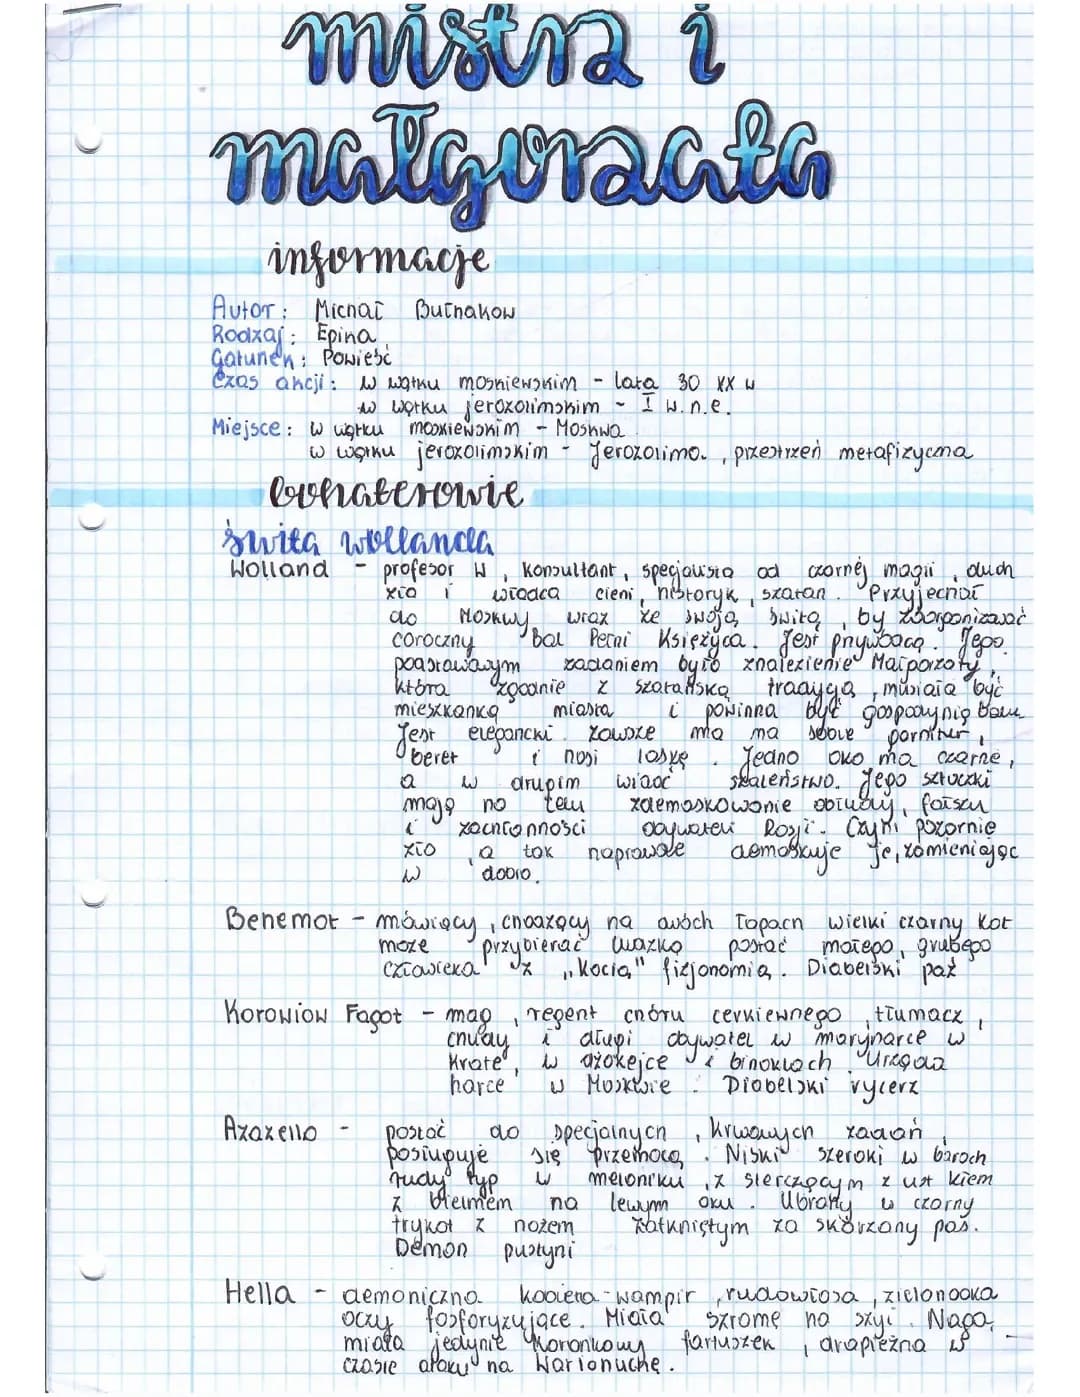 mistrz i
małgorzata
informacje
Autor: Michał Bułhakow
Rodzaj: Epika
Gatunek: Powieść
Czas akcji: w wątku moskiewskim - lata 30 XX w
w wątku jerozolimskim - I w. n.e.
Miejsce: w wątku moskiewskim - Moskwa
w wątku jerozolimskim - Jerozolima, przestrzeń metafizyczna
bohaterowie
świta wollanda
Wolland - profesor W, konsultant, specjalista od czarnej magii, duch
zła i władca cieni, historyk, szatan. Przyjechał
do Moskwy wraz ze swoją świtą, by zoorganizować
coroczny bal Pełni Księżyca. Jest przywódcą. Jego
podstawowym zadaniem było znalezienie Małgorzaty,
która zgodnie z szatańską tradycją, musiała być
mieszkanką miasta i powinna być gospodynią balu
Jest elegancki. Zawsze ma na sobie garnitur,
beret i nosi laskę. Jedno oko ma czarne,
a w drugim widać szaleństwo. Jego sztuczki
mają na celu zdemaskowanie obłudy, fałszu
i zachłanności obywateli Rosji. Czyni pozornie
zło, a tak naprawdę demaskuje je, zamieniając
w dobro.
Behemot - mówiący, chodzący na dwóch łapach wielki czarny kot
może przybierać ludzką postać małego, grubego
człowieka z „kocią" fizjonomią. Diabelski paź
Korowiow Fagot - mag, regent chóru cerkiewnego, tłumacz,
chudy i długi obywatel w marynarce w
kratę, w dżokejce i binoklach. Urządza
harce w Moskwie. Diabelski rycerz
Azazello - postać do specjalnych, krwawych zadań,
posługuje się przemocą. Niski szeroki w barach
rudy typ w meloniku, z sterczącym z ust kłem
z bielmem na lewym oku. Ubrany w czarny
trykot z nożem zatkniętym za skórzany pas.
Demon pustyni
Hella - demoniczna kobieta-wampir, rudowłosa, zielonooka
oczy fosforyzujące. Miała szramę na szyi. Naga,
miała jedynie koronkowy fartuszek, drapieżna w
czasie ataku na Warionuchę.